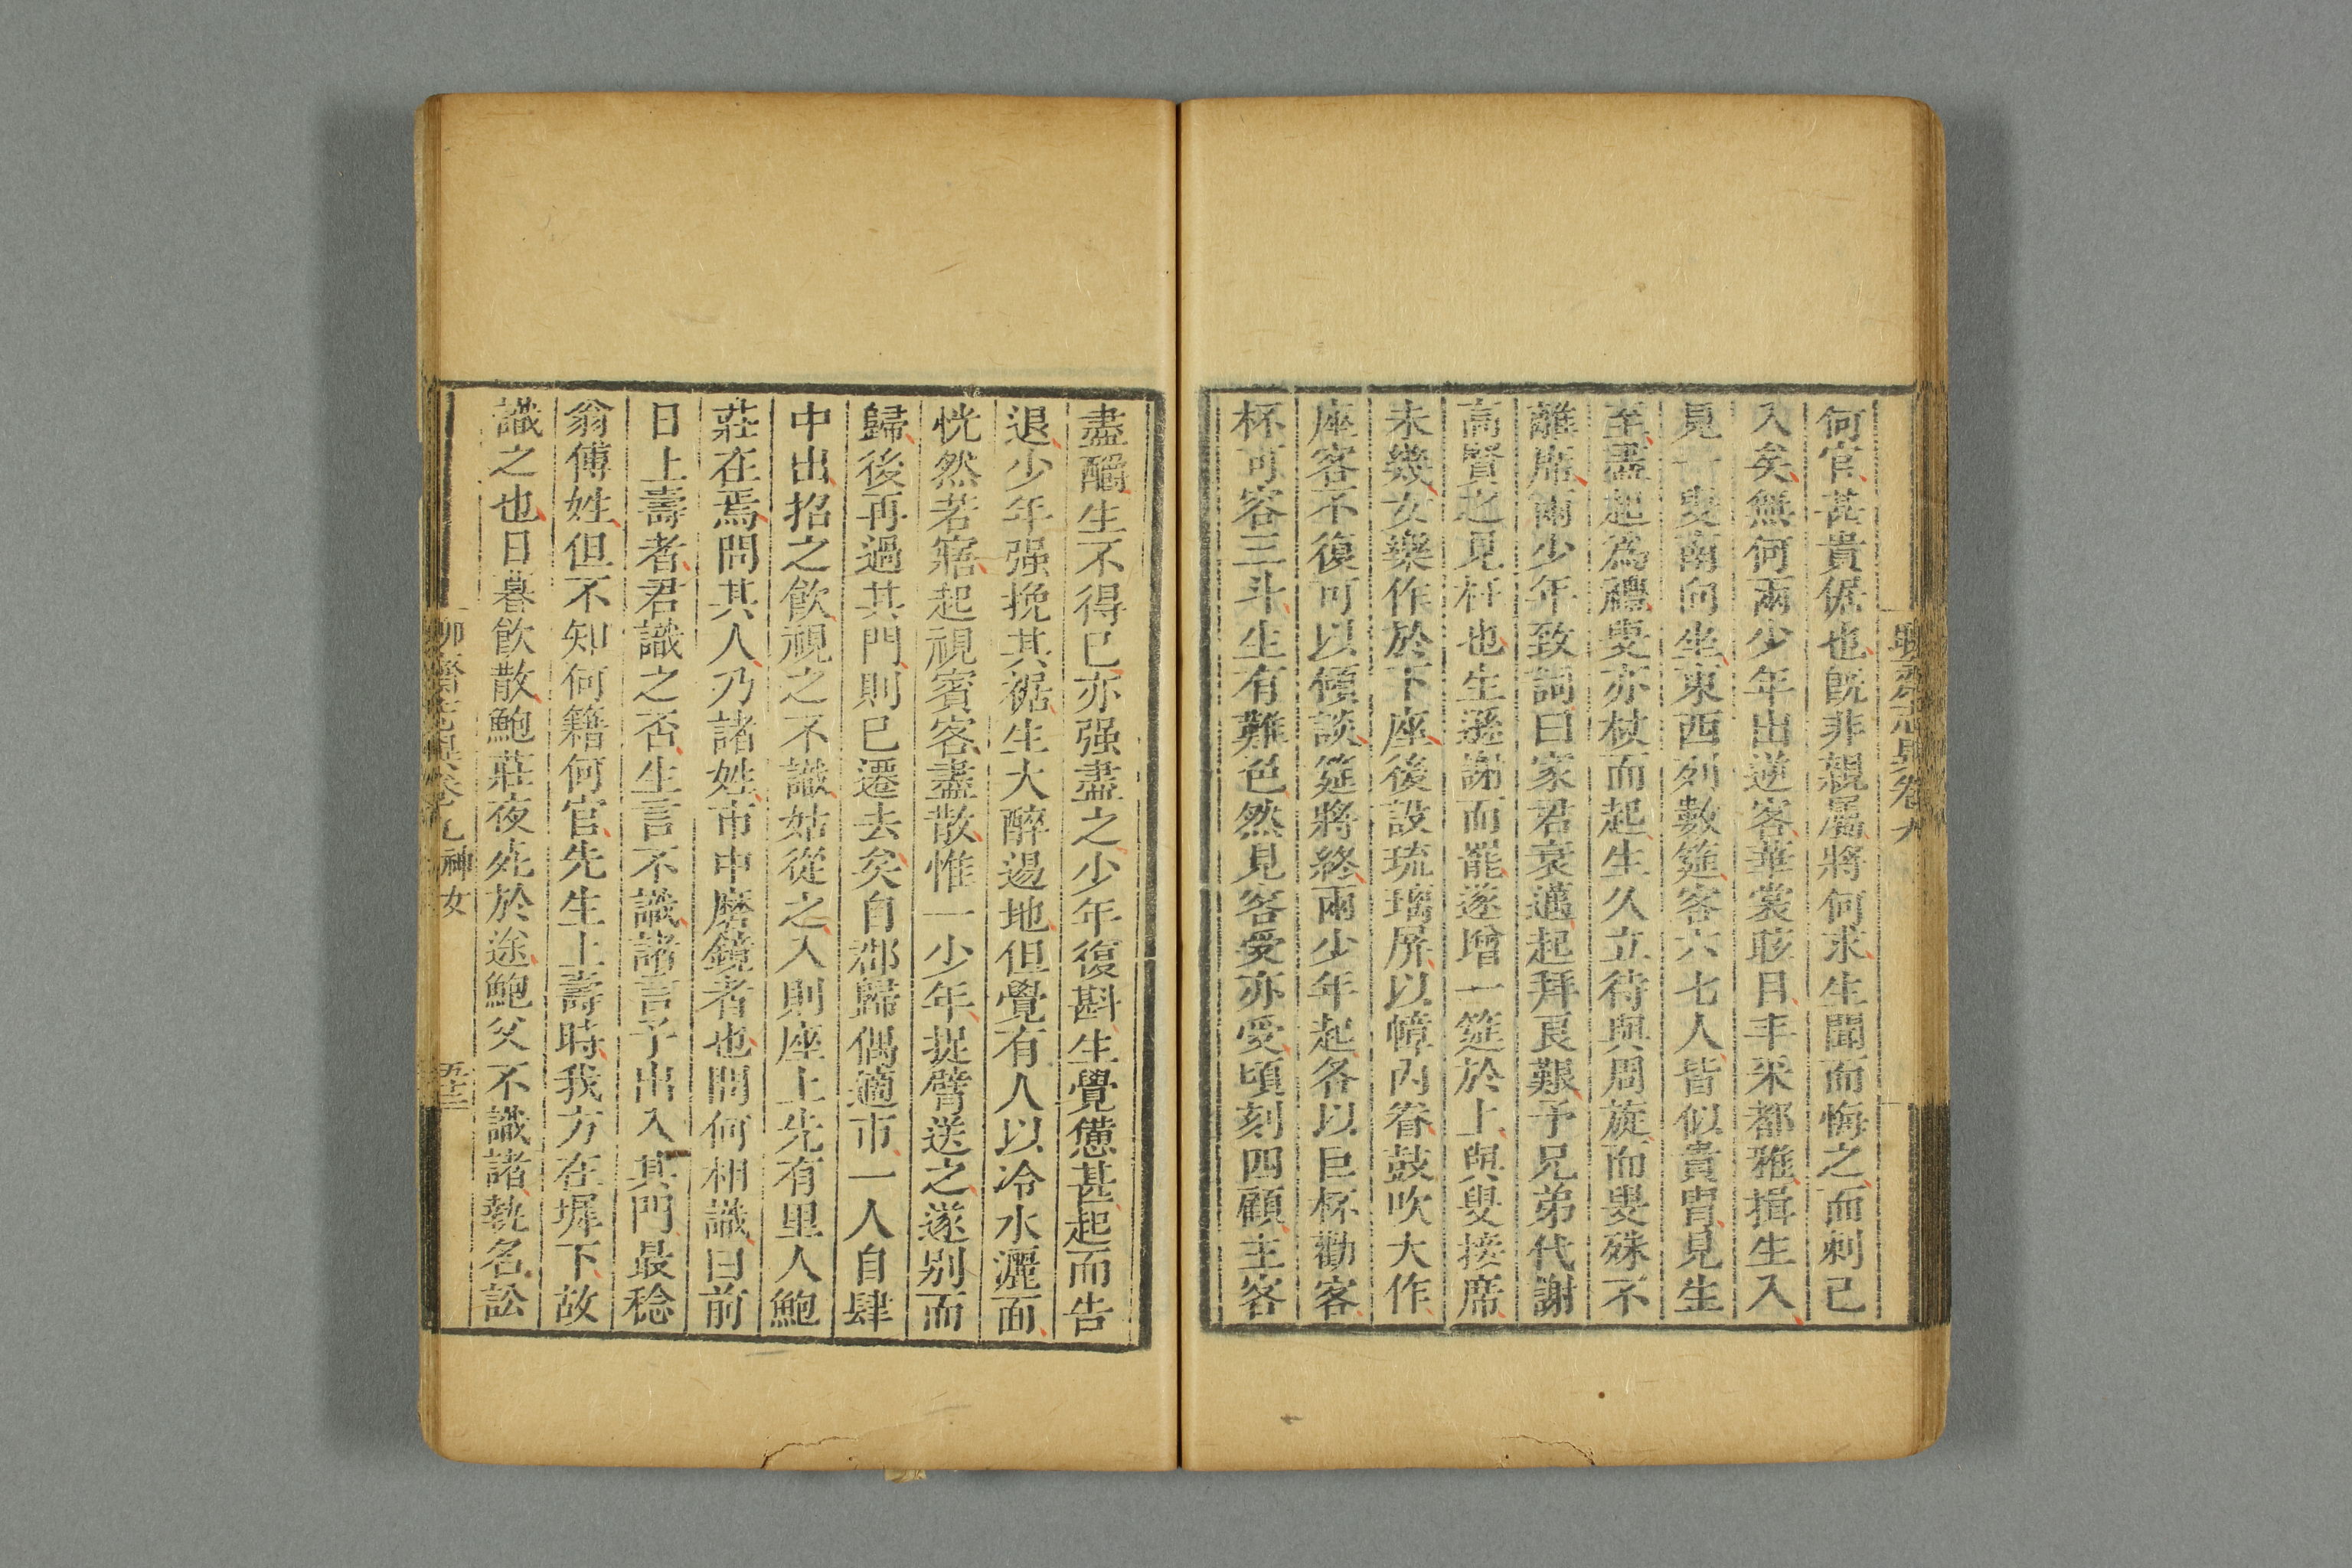 聊齋志異卷九
何官甚貴倨也既非親屬將何求生聞而悔之而刺已
入矣無何兩少年出逆客華裳眩目丰采都雅揖生入
見一叟南向坐東西列數筵客六七人皆似貴胄見生
至盡起爲禮叟亦杖而起生久立待與周旋而叟殊不
離席兩少年致詞曰家君衰邁起拜良艱予兄弟代謝
高賢之見枉也生遜謝而罷遂增一筵於上與叟接席
未幾女樂作於下座後設琉璃屏以幛內眷鼓吹大作
座客不復可以傾談筵將終兩少年起各以巨杯勸客
杯可容三斗生有難色然見客受亦受頃刻四顧主客
盡釂生不得已亦强盡之少年復斟生覺憊甚起而告
退少年强挽其裾生大醉逿地但覺有人以冷水灑面
恍然若寤起視賓客盡散惟一少年捉臂送之遂别而
歸後再過其門則已遷去矣自郡歸偶適市一人自肆
中出招之飲視之不識姑從之入則座上先有里人鮑
莊在焉問其人乃諸姓市中磨鏡者也問何相識曰前
日上壽者君識之否生言不識諸言予出入其門最稔
翁傅姓但不知何籍何官先生上壽時我方在墀下故
識之也日暮飲散鮑莊夜死於途鮑父不識諸執名訟
聊齋志異卷九 神女 五十三